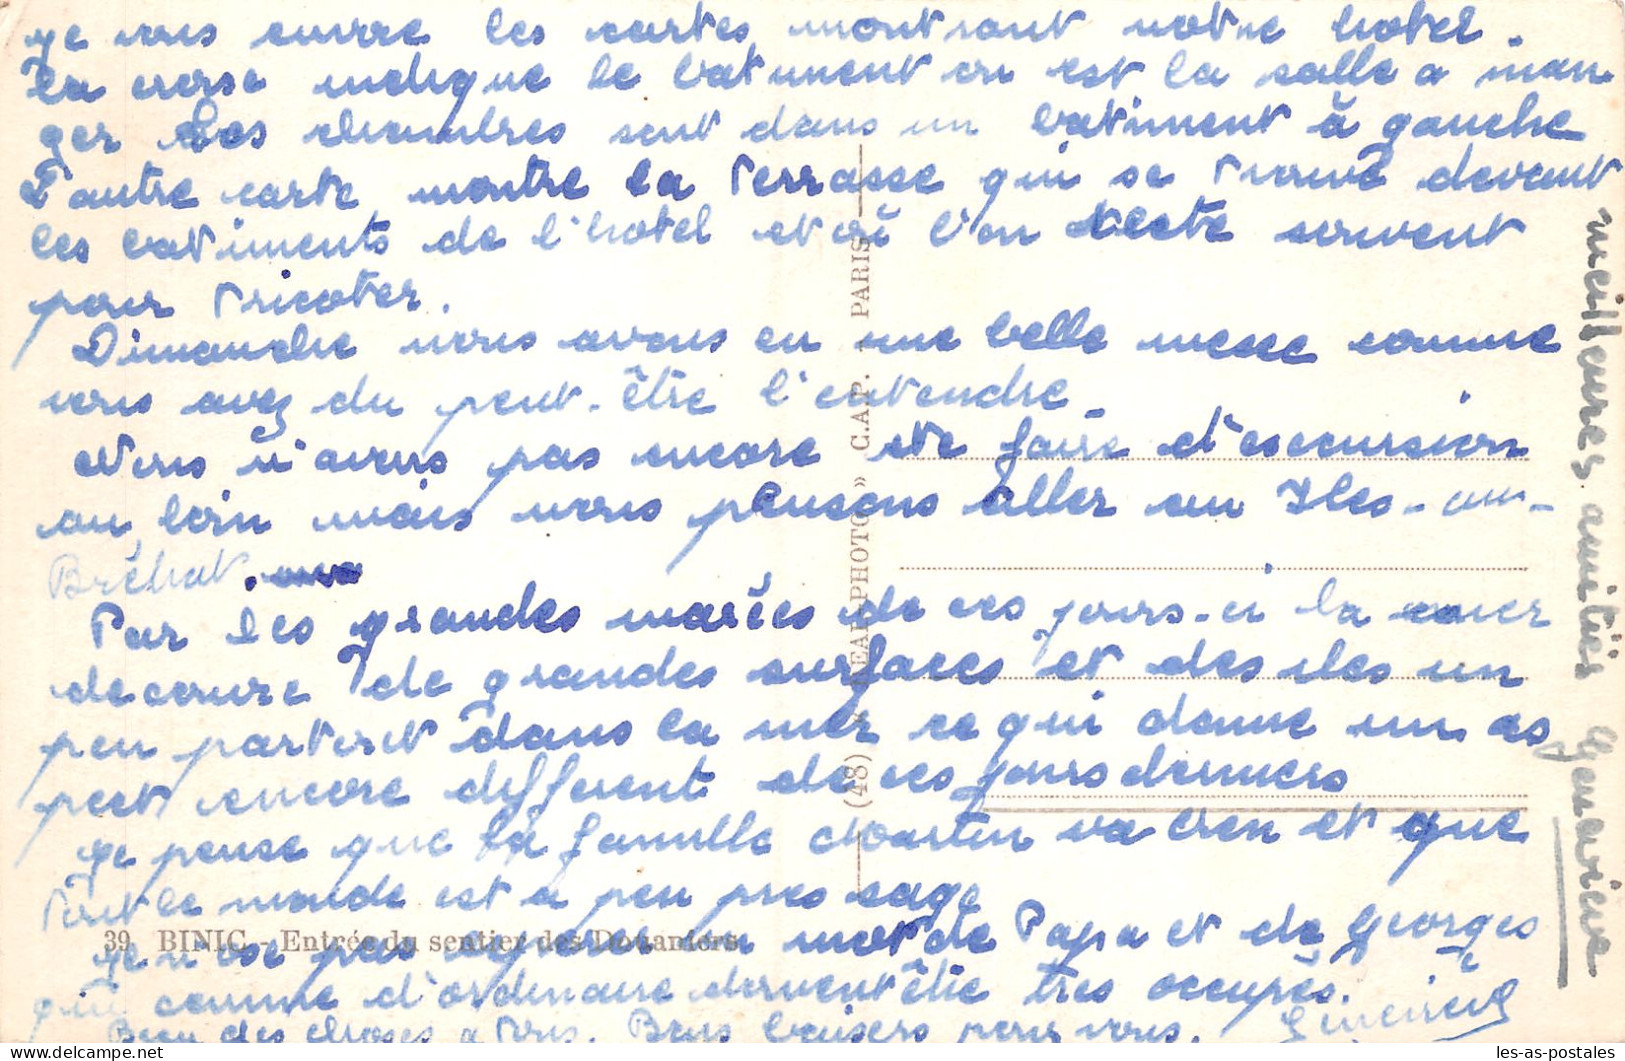 Je vous envoie les cartes montrant notre hotel.
La croix indique le batiment ou est la salle a man
ger Les chambres sont dans un batiment à gauche
L'autre carte montre la terrasse qui se trouve devant
les batiments de l'hotel et où l'on reste souvent
pour tricoter.
Dimanche nous avons eu une belle messe comme
vous avez du peut-être l'entendre.
Nous n'avons pas encore été faire d'excursion
au loin mais nous pensons aller au Iles-
Bréhat.
Par les grandes marées de ces jours-ci la mer
decouvre de grandes surfaces et des iles un
peu partout dans la mer ce qui donne un as
pect encore different de ces jours derniers
Je pense que la famille Martin va bien et que
tout le monde est a peu pres sage
Je n'ose pas esperer un mot de Papa et de Georges
qui comme d'ordinaire doivent être très occupés.
Bien des choses a tous. Bons baisers pour vous. Genevieve
meilleures amitiés Genevieve
39 BINIC - Entrée du sentier des Douaniers
(48) « REALPHOTO » C.A.P. - PARIS
les-as-postales.com